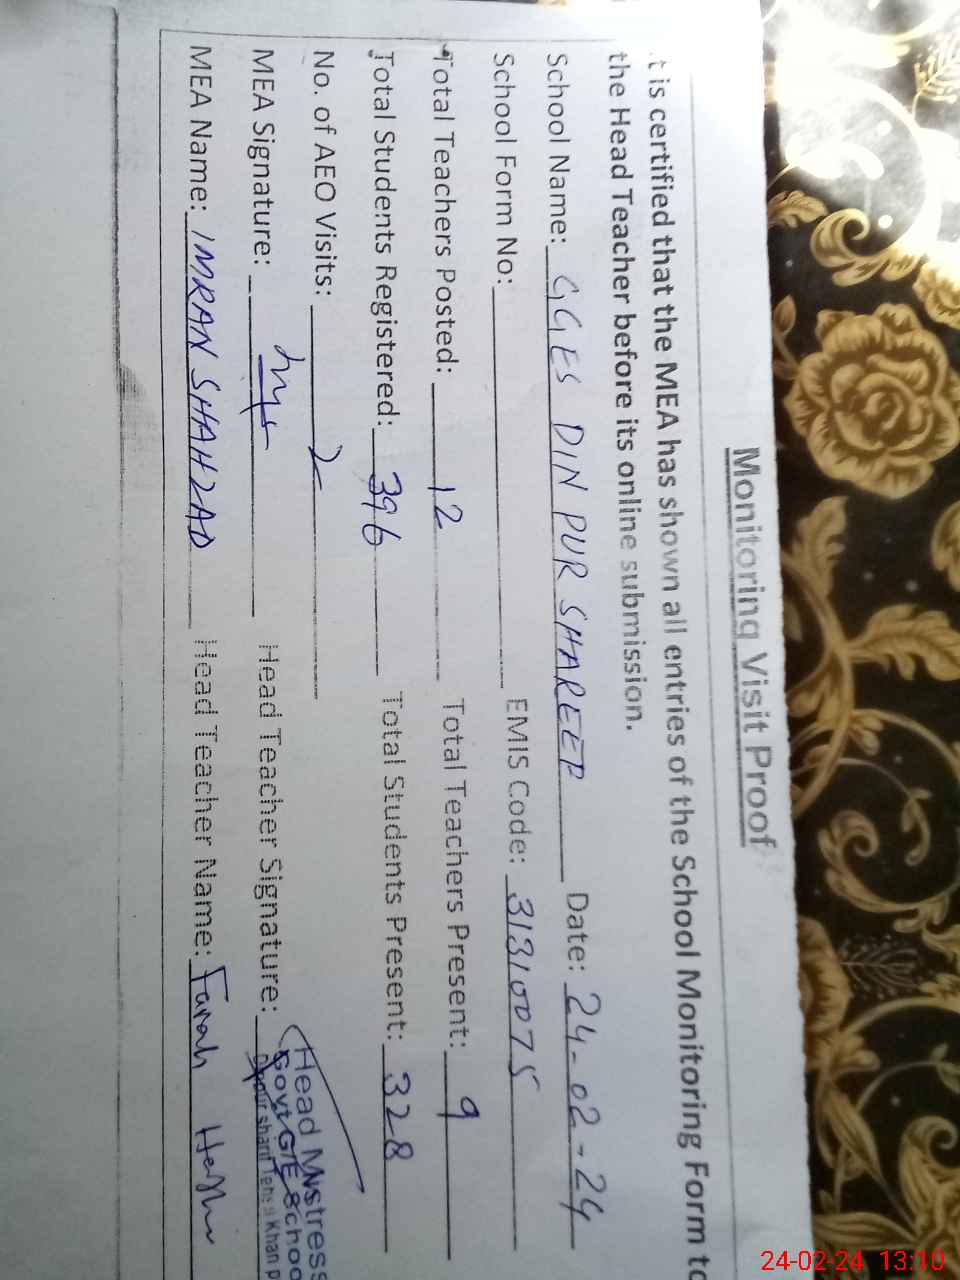 Monitoring Visit Proof
t is certified that the MEA has shown all entries of the School Monitoring Form to
the Head Teacher before its online submission.
School Name: GGES DIN PUR SHAREEF Date: 24-02-24
School Form No: EMIS Code: 31310075
Total Teachers Posted: 12 Total Teachers Present: 9
Total Students Registered: 396 Total Students Present: 328
No. of AEO Visits: 2
MEA Signature: Head Teacher Signature:
Head Mistress
Govt G/E School
Sharif Teh: Khan p
MEA Name: IMRAN SHAHZAD Head Teacher Name: Farah
24-02-24 13:10